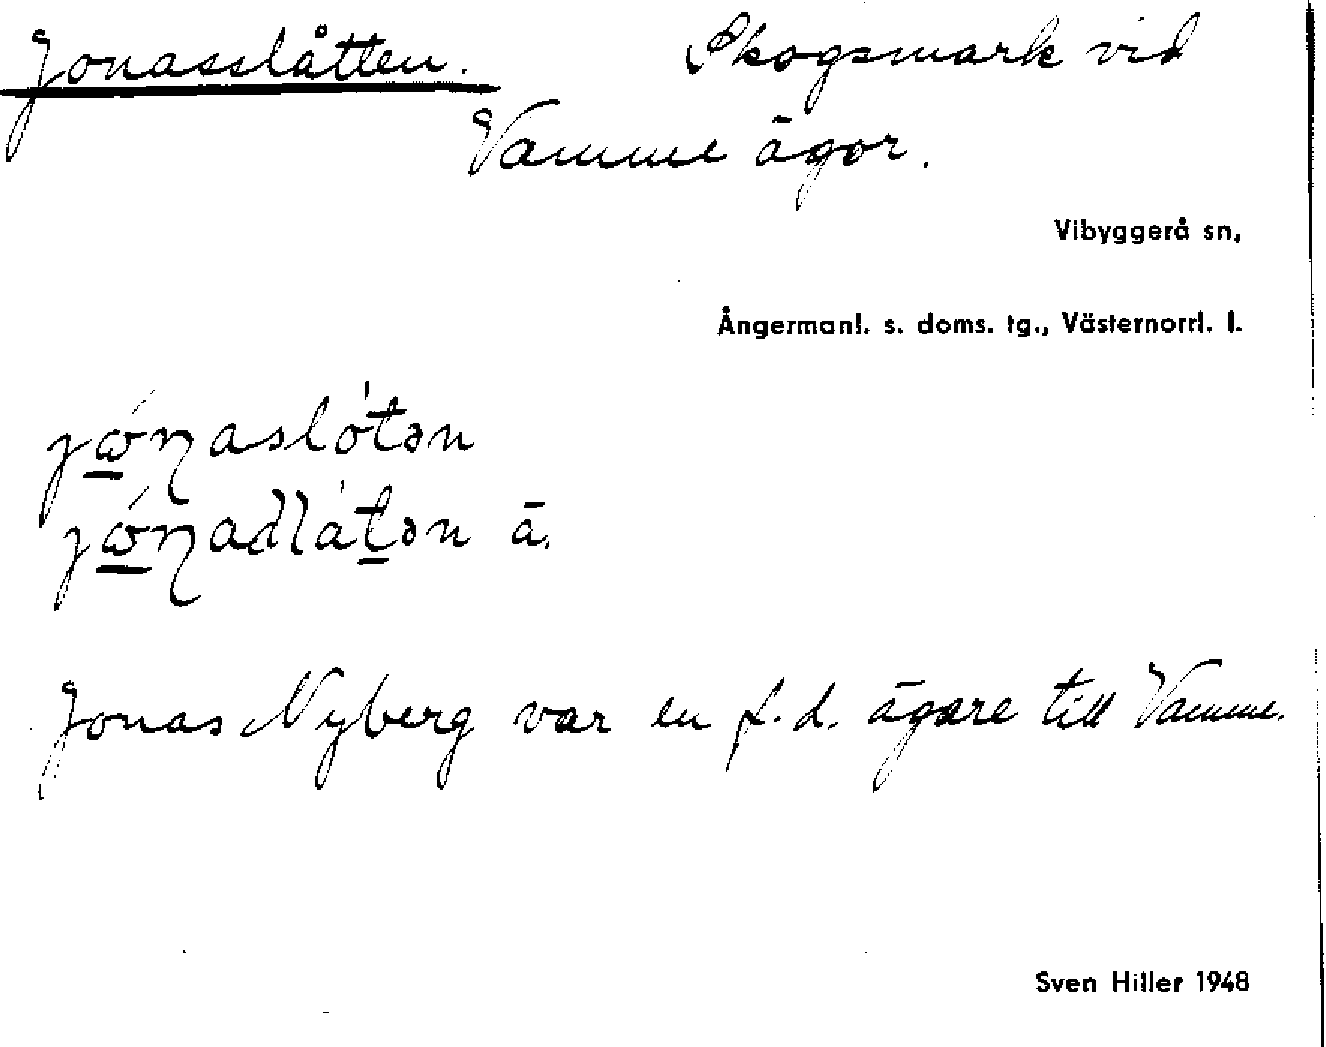 Jonasslåtten. Skogsmark vid
Vamme ägor.
Vibyggerå sn,
Ångermanl. s. doms. tg., Västernorrl. l.
ä.
Jonas Nyberg var en f.d. ägare till Vamme.
Sven Hiller 1948